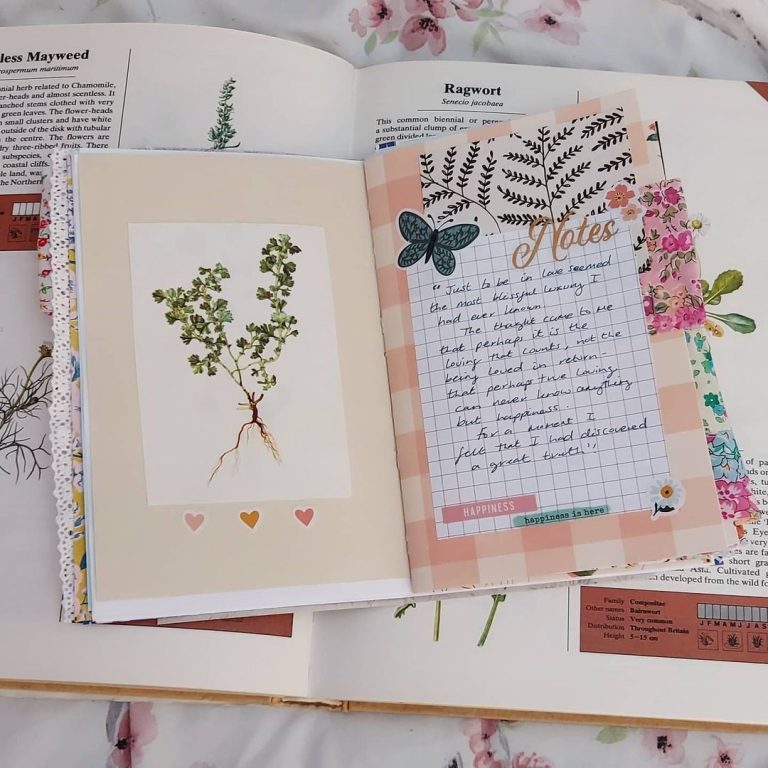 less Mayweed
ospermum maritimum
nial herb related to Chamomile,
er-heads and almost scentless. It
anched stems clothed with very
green leaves. The flower-heads
n small clusters and have white
outside of the disk with tubular
n the centre. The flowers are
dry three-ribbed fruits. There
subspecies,
coastal cliffs
le land, was
the Northern
J F M A M
Ragwort
Senecio jacobaea
This common biennial or
a substantial clump of
green divided
Notes
"Just to be in love seemed
the most blissful luxury I
had ever known.
The thought came to me
that perhaps it is the
loving that counts, not the
being loved in return -
that perhaps true loving
can never know anything
but happiness.
For a moment I
felt that I had discovered
a great truth"
HAPPINESS
happiness is here
short
Asia. Cultivated
developed from the wild
Family Compositae
Other names Bairnwort
Status Very common
Distribution Throughout Britain
Height 5–15 cm
J F M A M J J A S